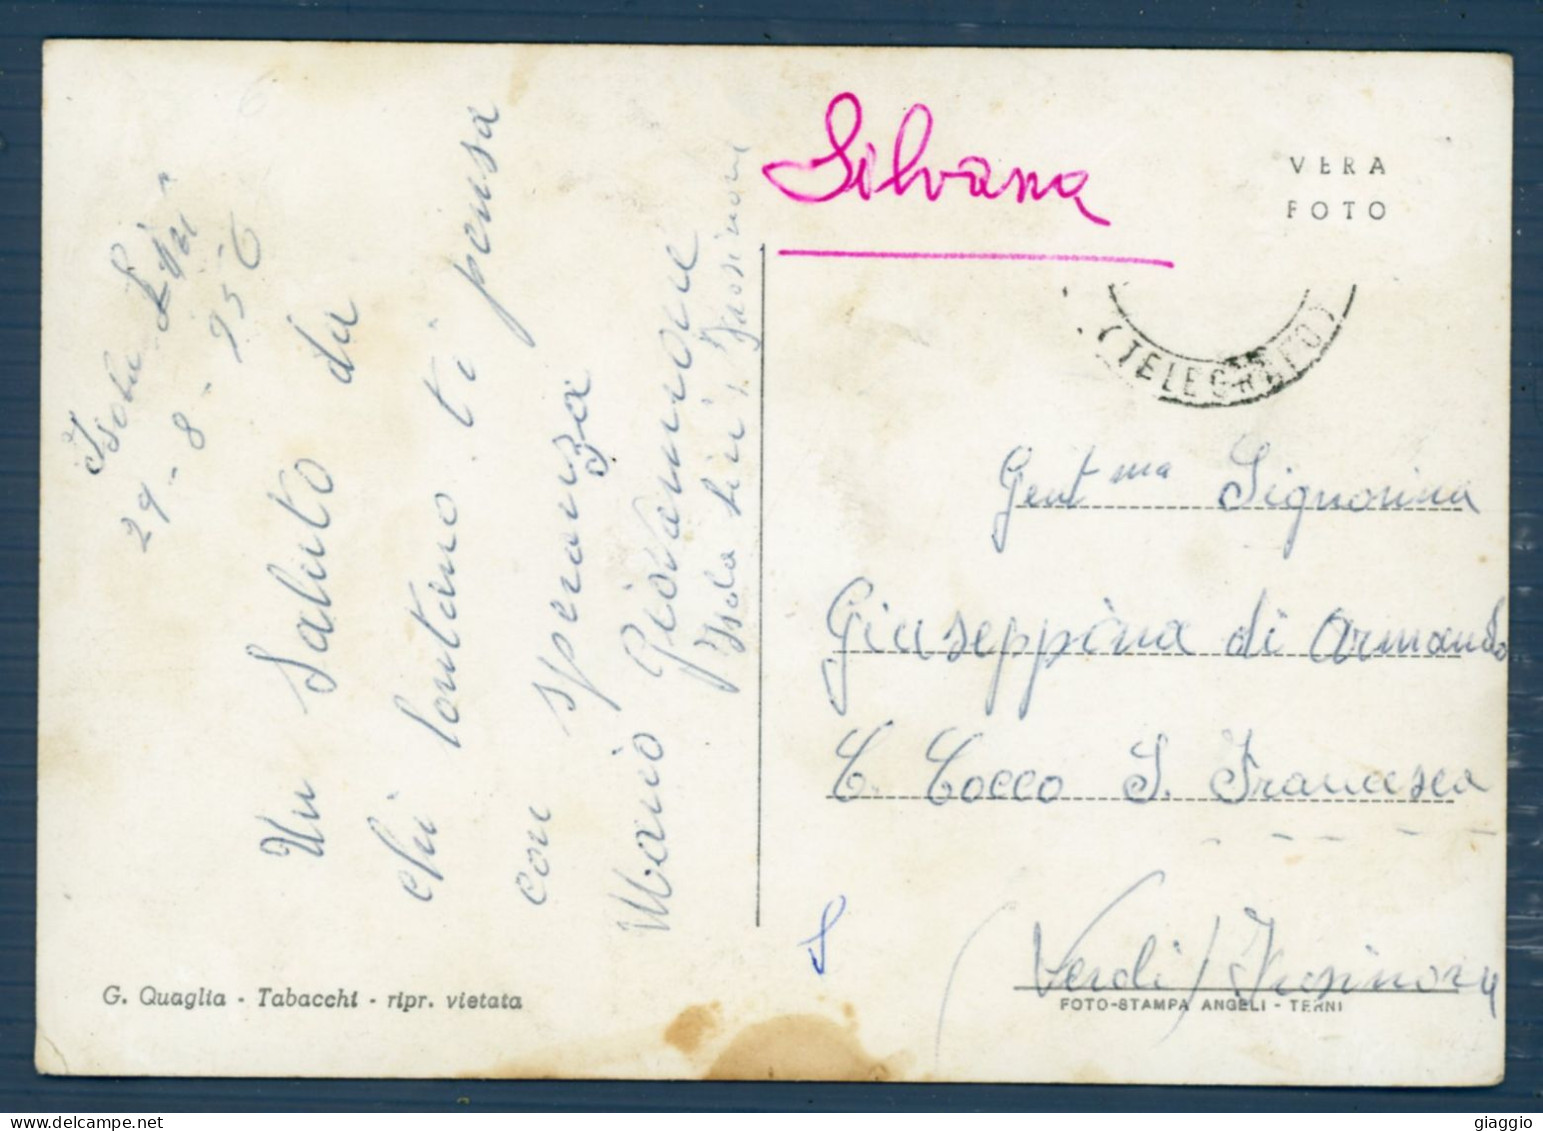 Isola Liri
29-8-956
Un saluto da
chi lontano ti pensa
con speranza
Mario Giovannone
Isola Liri Frosinone
G. Quaglia - Tabacchi - ripr. vietata
Silvana
VERA
FOTO
(TELEGRAFO)
Gent ma Signorina
Giuseppina di Armando
C. Cocco S. Francesca
(Veroli) Frosinone
FOTO-STAMPA ANGELI - TERNI
giaggio